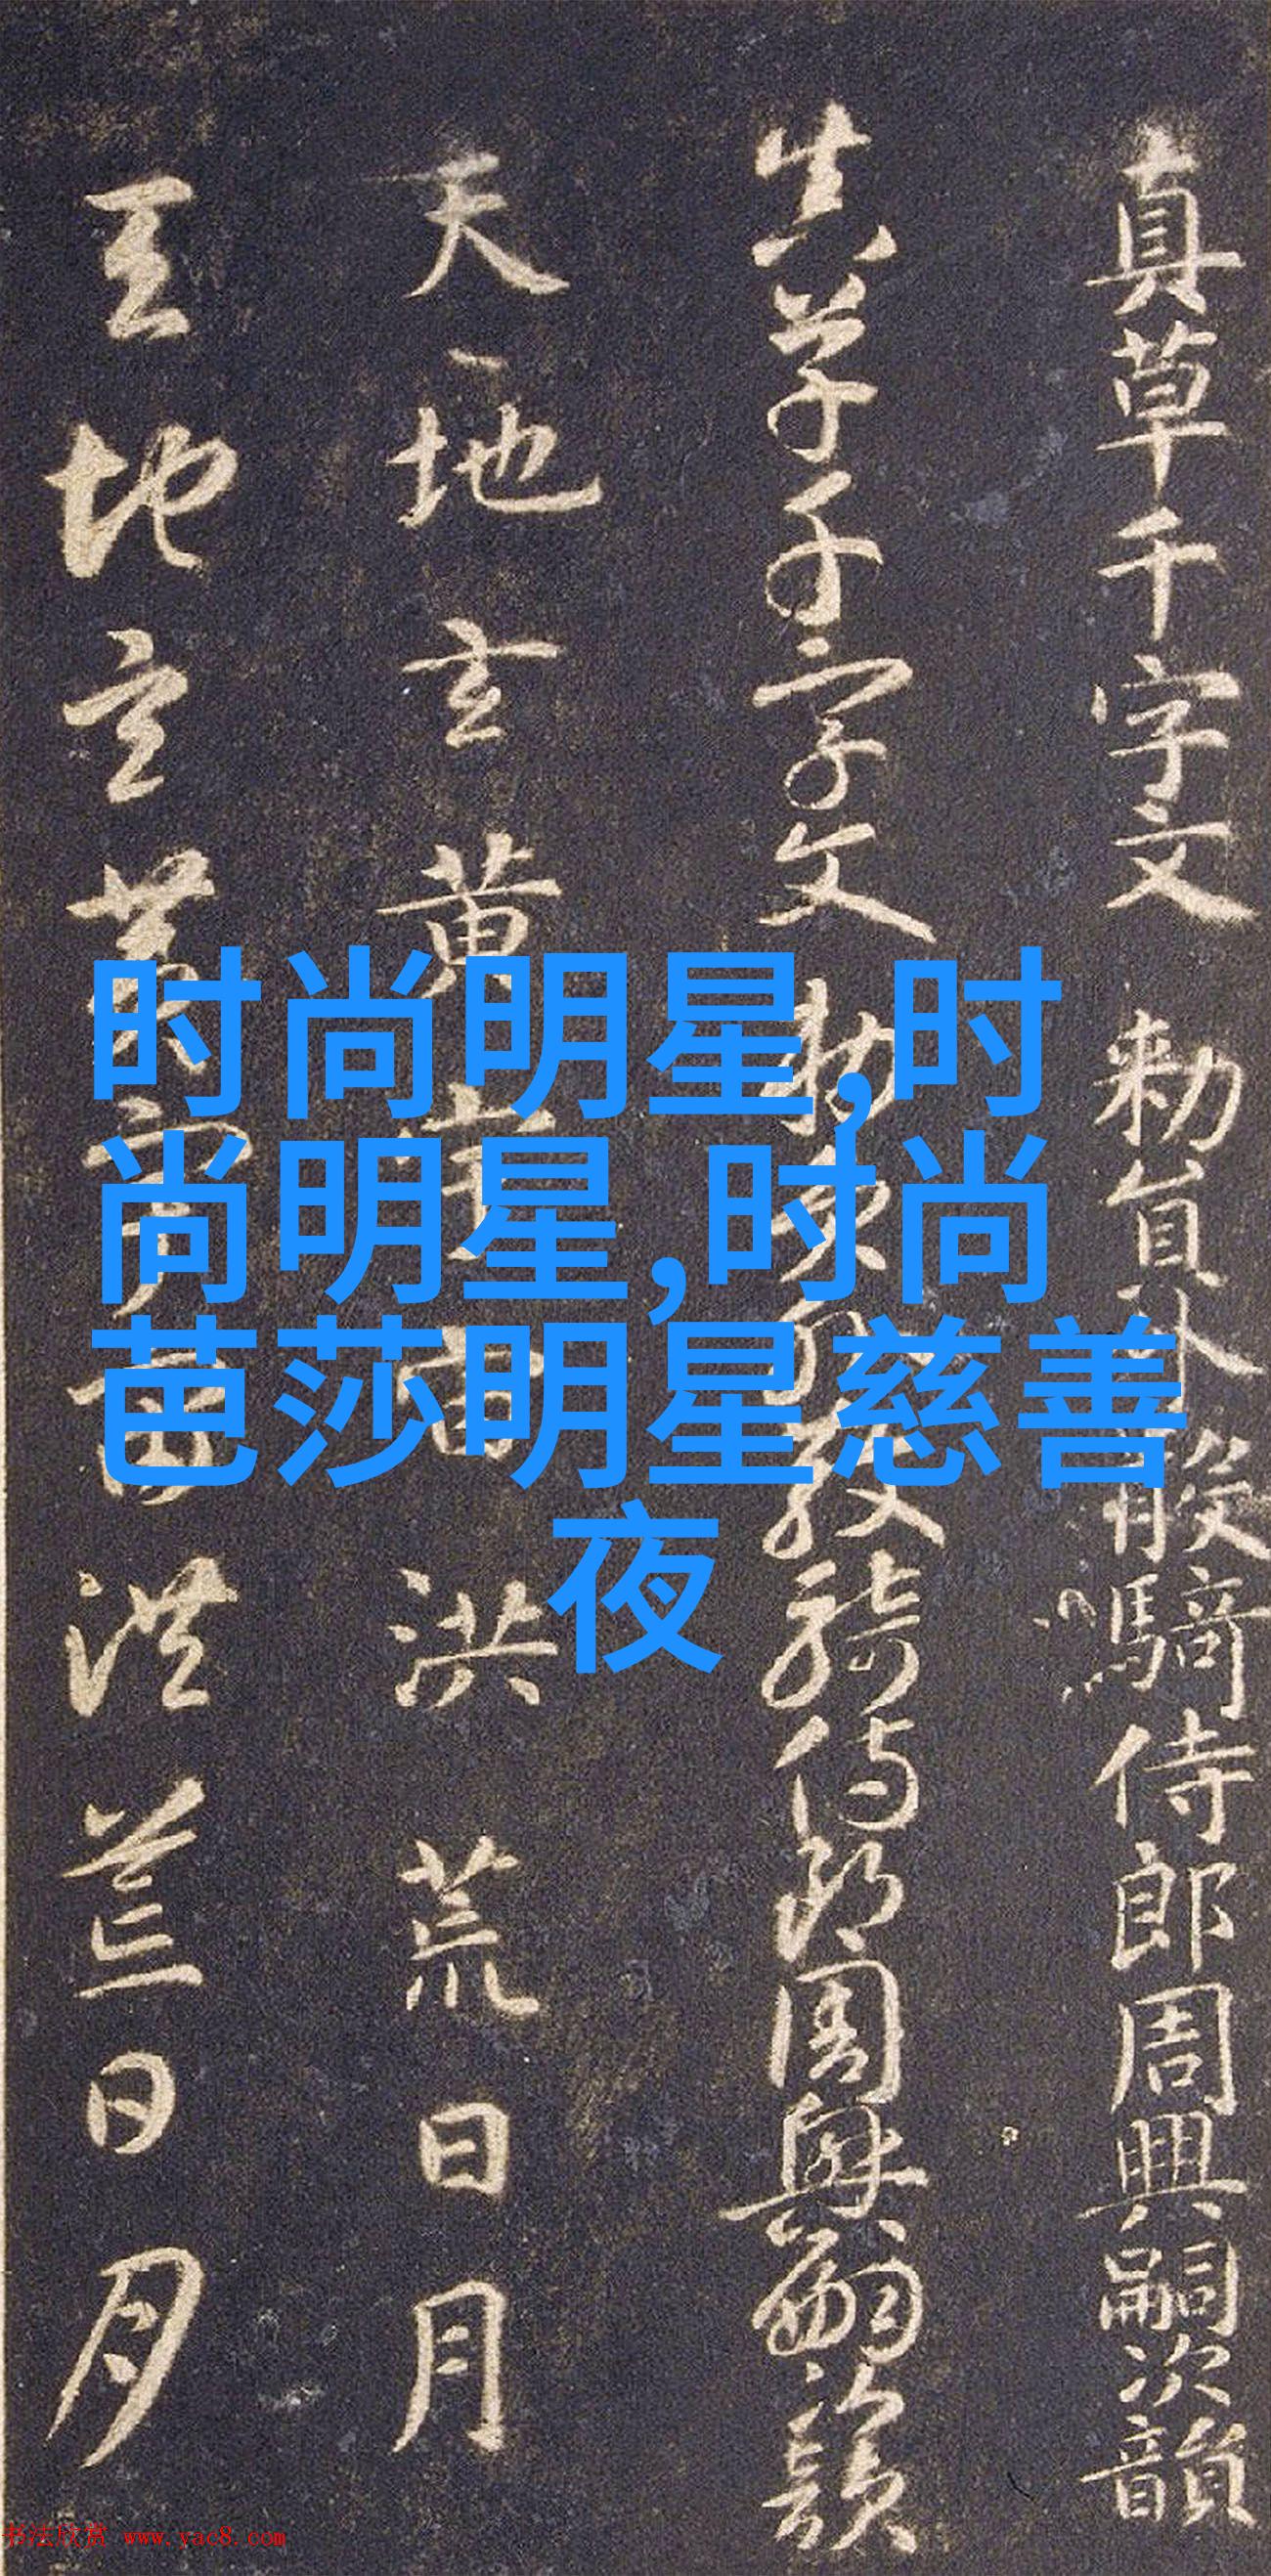 真草千字文 勅員外散騎侍郎周興嗣次韻
真草千字文 勅員外散騎侍郎周興嗣次韻
天地玄黄宇宙洪荒日月
天地玄黄宇宙洪荒日月
时尚明星,时
尚明星,时尚
芭莎明星慈善
夜
书法欣赏 www.yac8.com